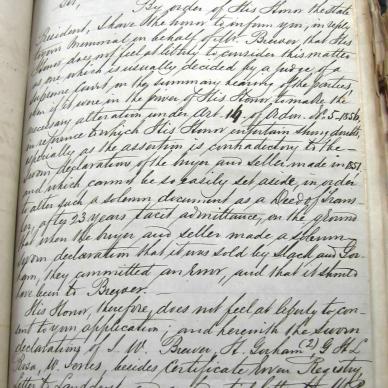 Sir,
By order of His Honor the State
President, I have the honor to inform you, in reply
to your Memorial in behalf of Mr. Brewer, that His
Honor does not feel at liberty to consider this matter
as one which is usually decided by a judge of a
Supreme Court, in the summary hearing of the parties
even if it were in the power of His Honor to make the
necessary alteration under Art. 14, of Ordin. No. 5-1856,
in refrance to which His Honor entertain strong doubts,
especially as the assertion is contradictory to the
sworn declaration of the buyer and seller made in 1851
and which cannot be so easily set aside, in order
to alter such a solemn document as a Deed of Trans-
fer, after 23 years tacit admittance, on the ground
that when the buyer and seller made a solemn
sworn declaration that it was sold by Slack and Gor-
ham, they committed an error, and that it should
have been to Brewer.—
His Honor, therefore, does not feel at liberty to con-
sent to your application; and herewith the sworn
declarations of J. W. Brewer, H. Gorham (2) G. H. L
W. Jones, besides Certificate from Registry